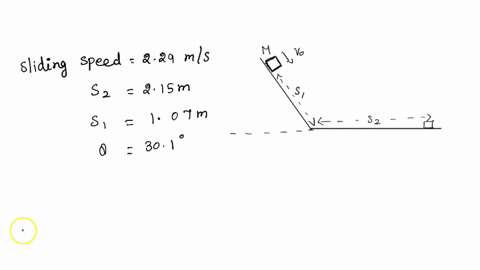 sliding speed = 2.29 m/s
S2 = 2.15m
S1 = 1.07m
θ = 30.1°
M
V0
S1
S2